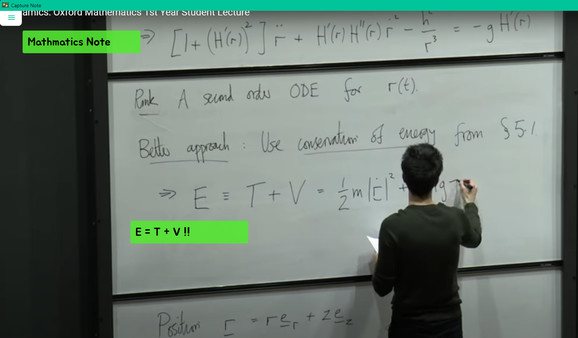 Capture Note
amics: Oxford Mathematics 1st Year Student Lecture
Mathmatics Note
⇒ [1 + (H'(r))²] r̈ + H'(r) H''(r) ṙ² − h²/r³ = −g H'(r)
Rmk A second order ODE for r(t).
Better approach : Use conservation of energy from §5.1
⇒ E ≡ T + V = ½ m |ṙ|² + g
E = T + V !!
Position r = r e_r + z e_z